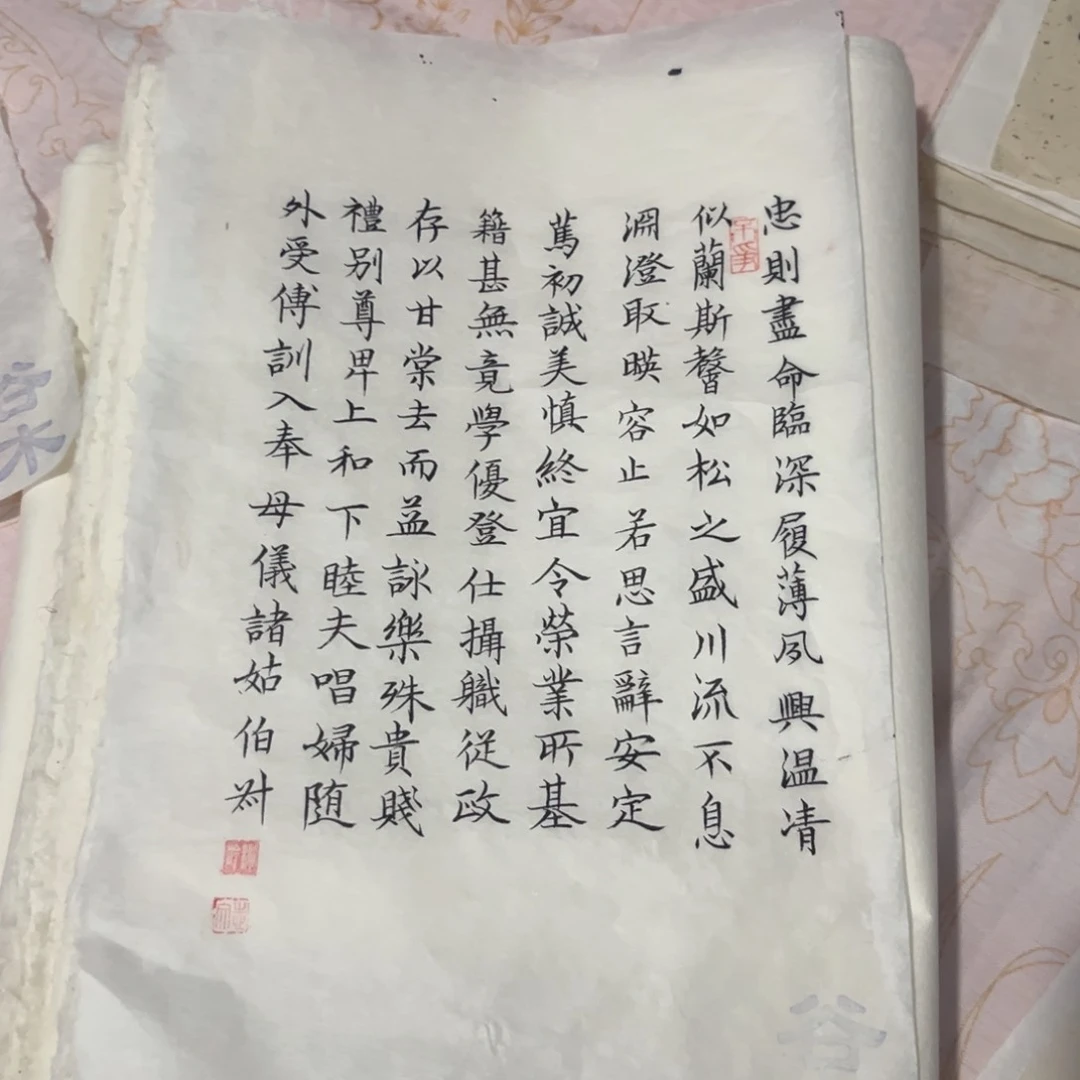 忠則盡命臨深履薄夙興温凊
似蘭斯馨如松之盛川流不息
淵澄取暎容止若思言辭安定
篤初誠美慎終宜令榮業所基
籍甚無竟學優登仕攝職從政
存以甘棠去而益詠樂殊貴賤
禮别尊卑上和下睦夫唱婦随
外受傅訓入奉母儀諸姑伯叔
谷